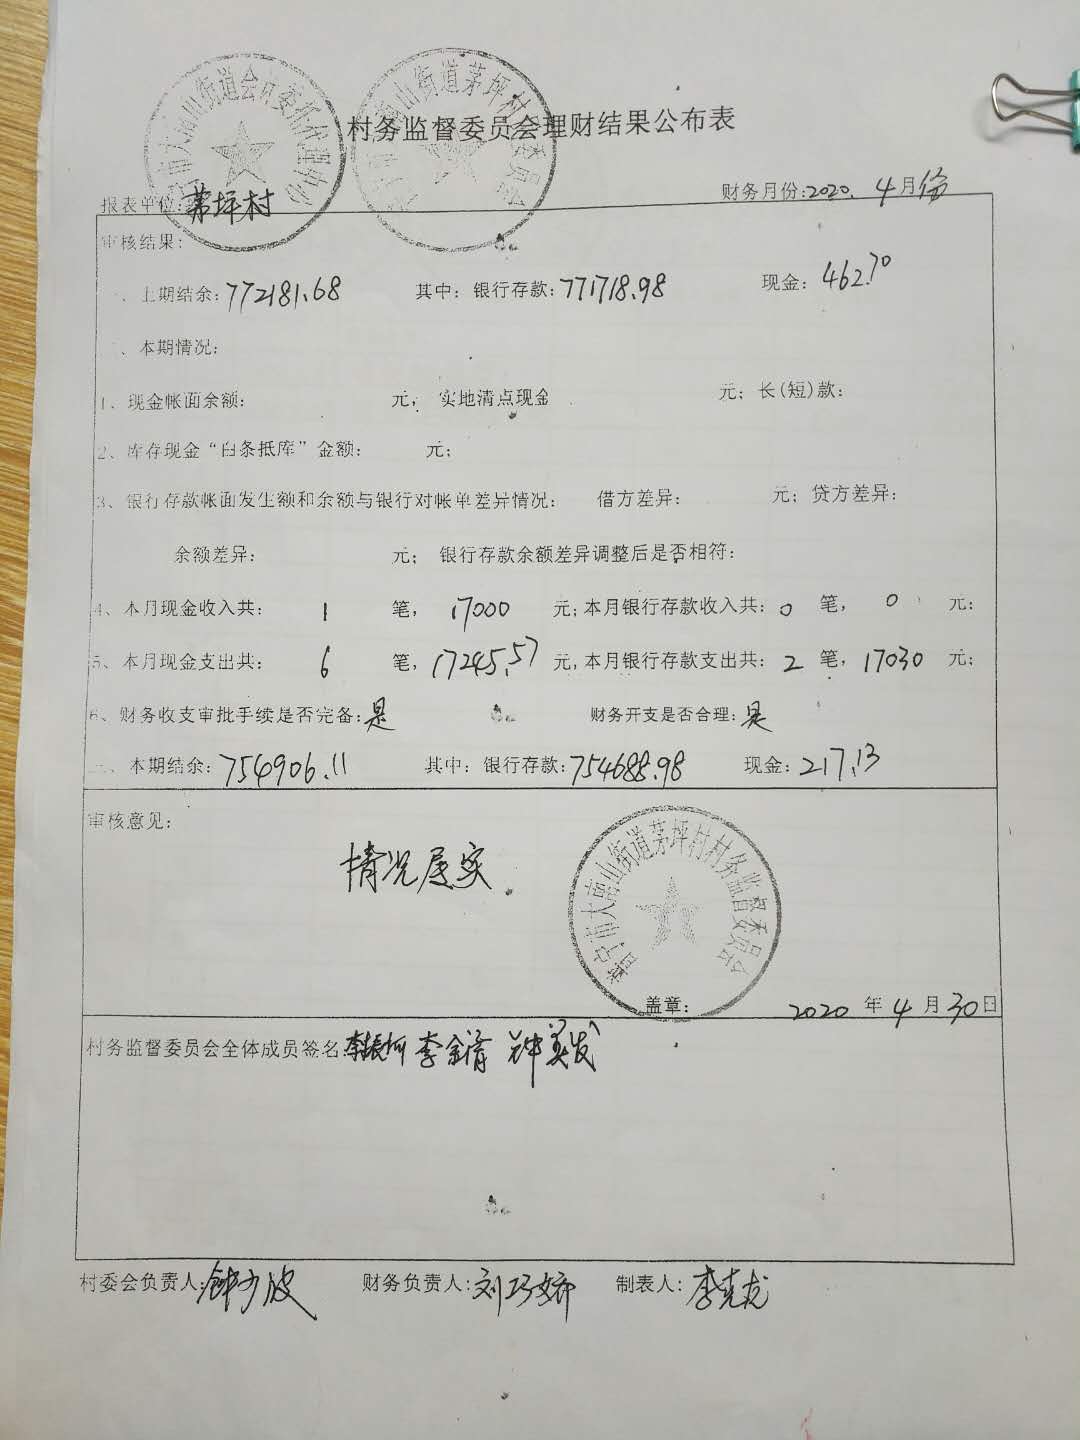 村务监督委员会理财结果公布表
报表单位:茅坪村 财务月份:2020.4月份
审核结果:
一、上期结余:772181.68 其中:银行存款:771718.98 现金:462.70
二、本期情况:
1、现金帐面余额: 元, 实地清点现金 元;长(短)款:
2、库存现金“白条抵库”金额: 元;
3、银行存款帐面发生额和余额与银行对帐单差异情况: 借方差异: 元;贷方差异:
余额差异: 元; 银行存款余额差异调整后是否相符:
4、本月现金收入共: 1 笔, 17000 元;本月银行存款收入共: 0 笔, 0 元;
5、本月现金支出共: 6 笔, 17245.57 元,本月银行存款支出共: 2 笔, 17030 元;
6、财务收支审批手续是否完备:是 财务开支是否合理:是
三、本期结余:754906.11 其中:银行存款:754688.98 现金:217.13
审核意见:
情况属实
普宁市大南山街道茅坪村村务监督委员会
盖章: 2020年4月30日
村务监督委员会全体成员签名:李振河 李金清
村委会负责人:钟少波 财务负责人:刘巧娇 制表人:李克龙